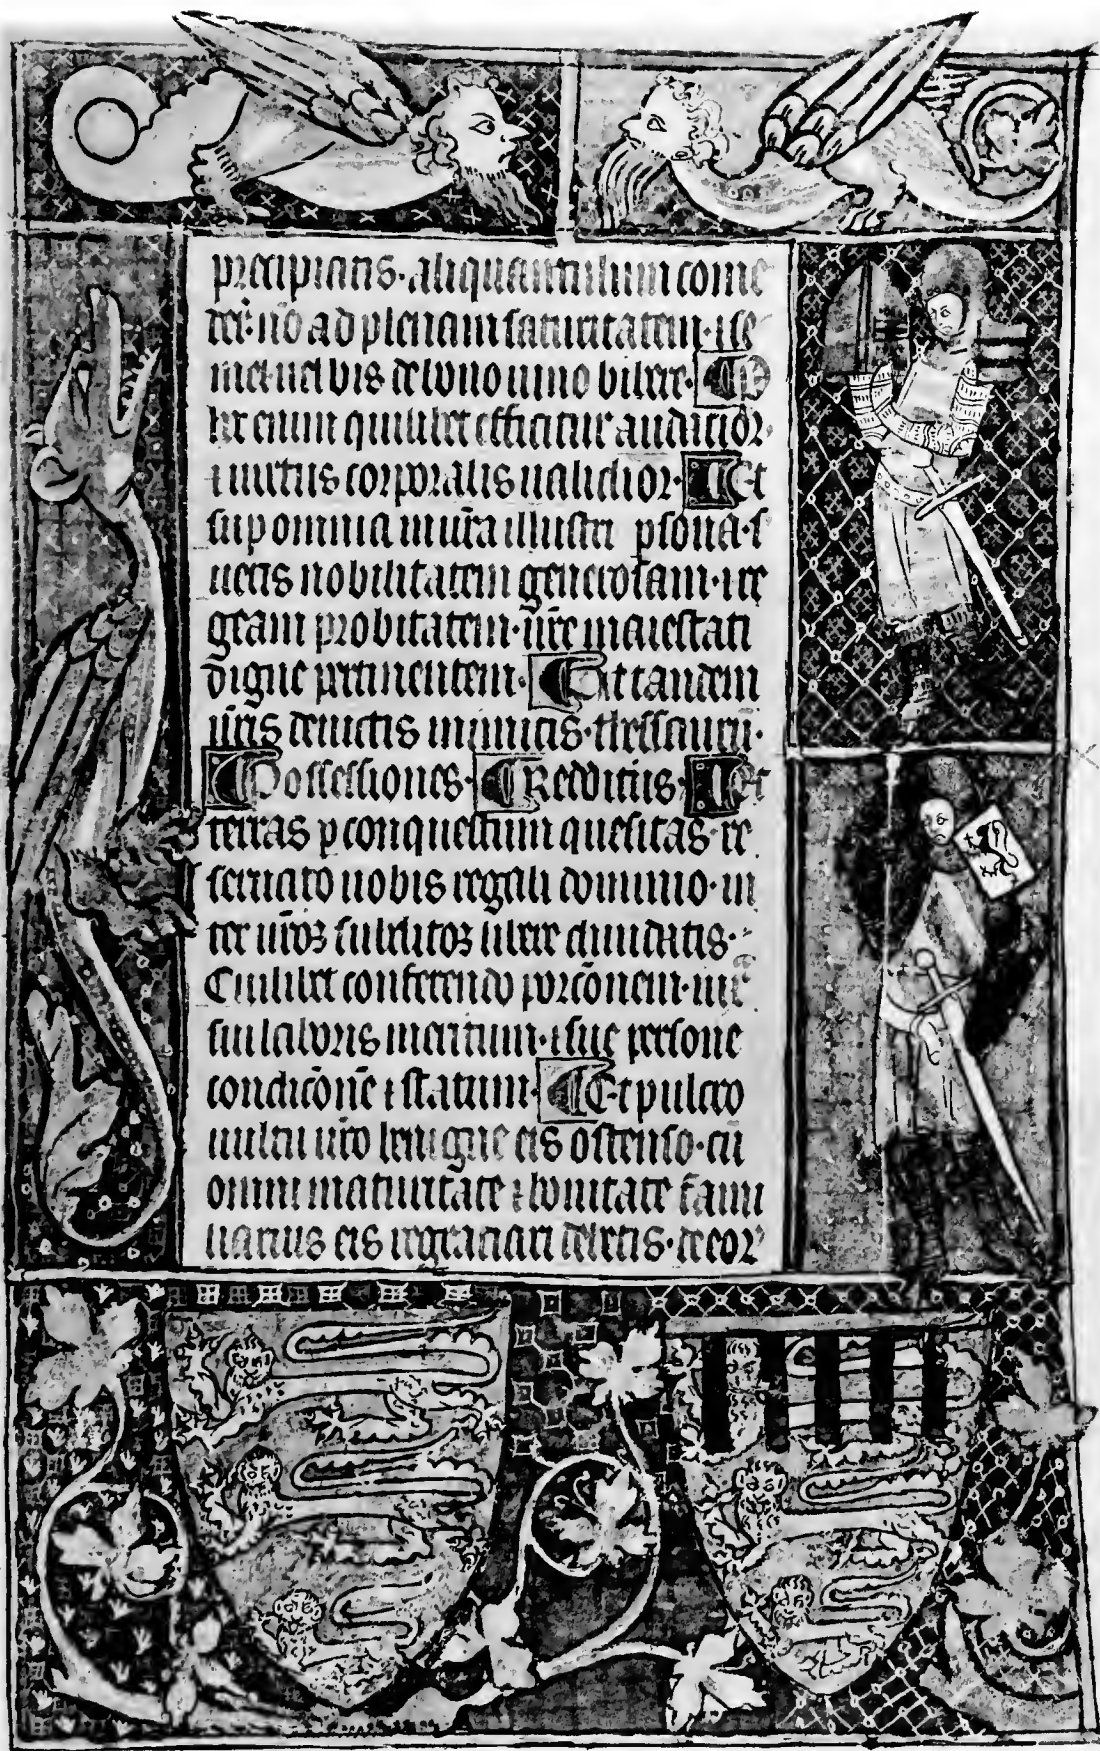 precipiatis· aliquantulum come
der̄· nō ad plenam saturitatem· ⁊ se
mel uel bis de bono uino bibere· P
er enim quilibet efficitur audacior·
⁊ uirtus corporalis ualidior· Et
sup omnia mūra illustri psona· s
uetis nobilitatem generosam· ⁊ re
geam probitatem· ur̄e maiestati
digne pertinentem· Et tandem
ur̄is deuictis inimicis· thessaurū·
Possessiones· Redditus· Et
terras p conquestum quesitas· re
seruato uobis regali dominio· in
ter ur̄os subditos libere diuidatis·
Cuilibet conferendo porcōnem· iux̄
sui laboris meritum· ⁊ sue persone
condicōnē ⁊ statum· Et pulcro
uultu ur̄o benigne eis ostenso· cū
omni maturitate ⁊ bonitate fami
liarius eis regraciari debetis· de eor